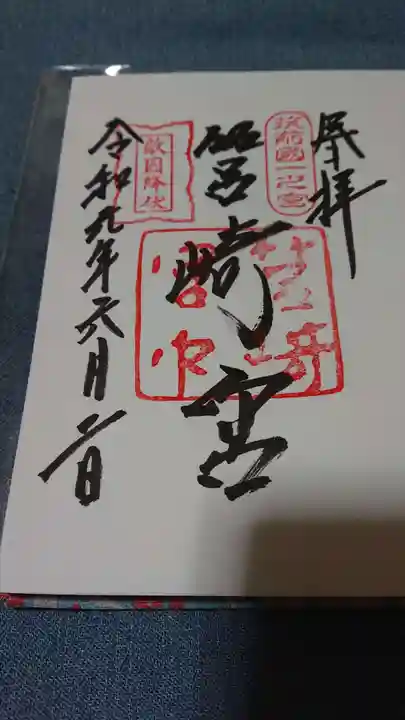 奉拝
筑前國一之宮
筥崎宮
筥崎
宮印
敵國降伏
令和元年六月二日